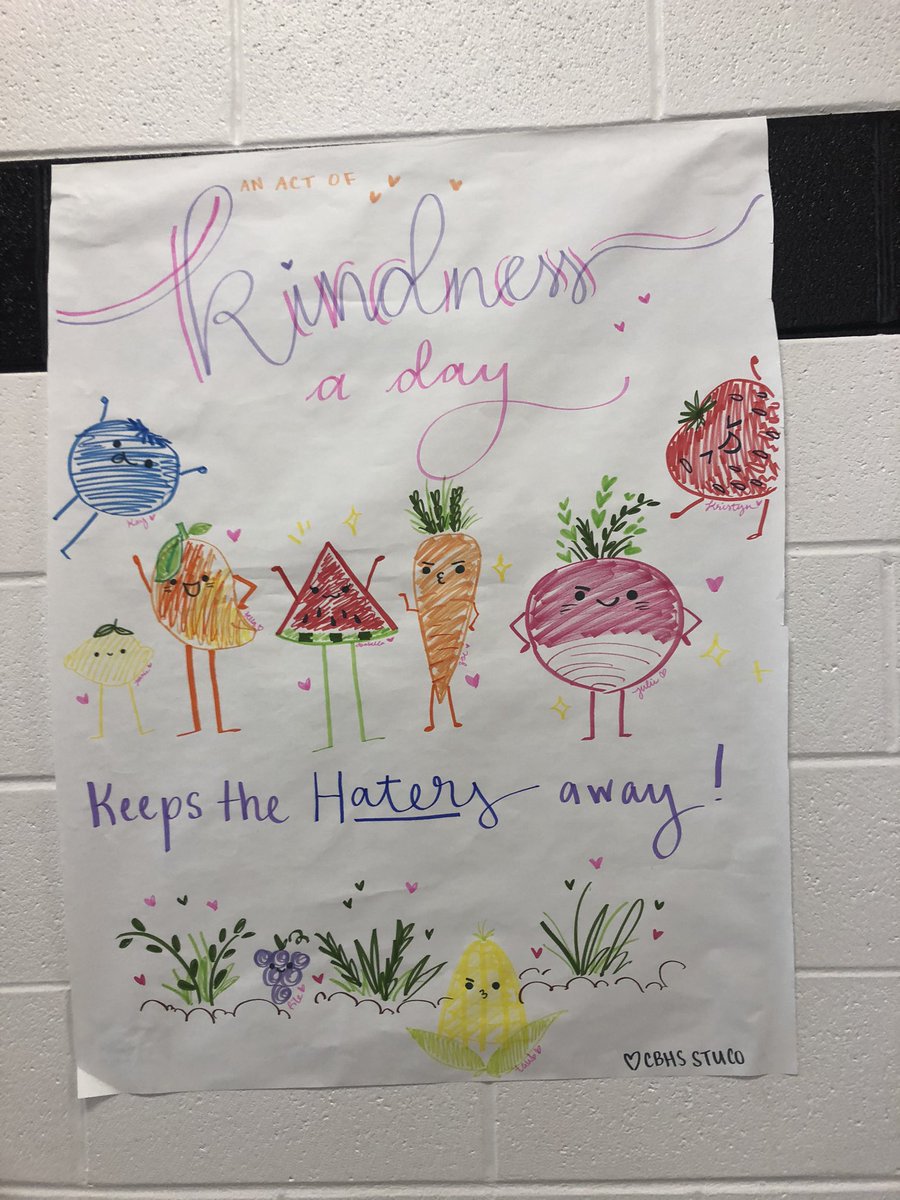 AN ACT OF
kindness
a day
Kay
Kristyn
julii
Keeps the Haters away!
CBHS STUCO